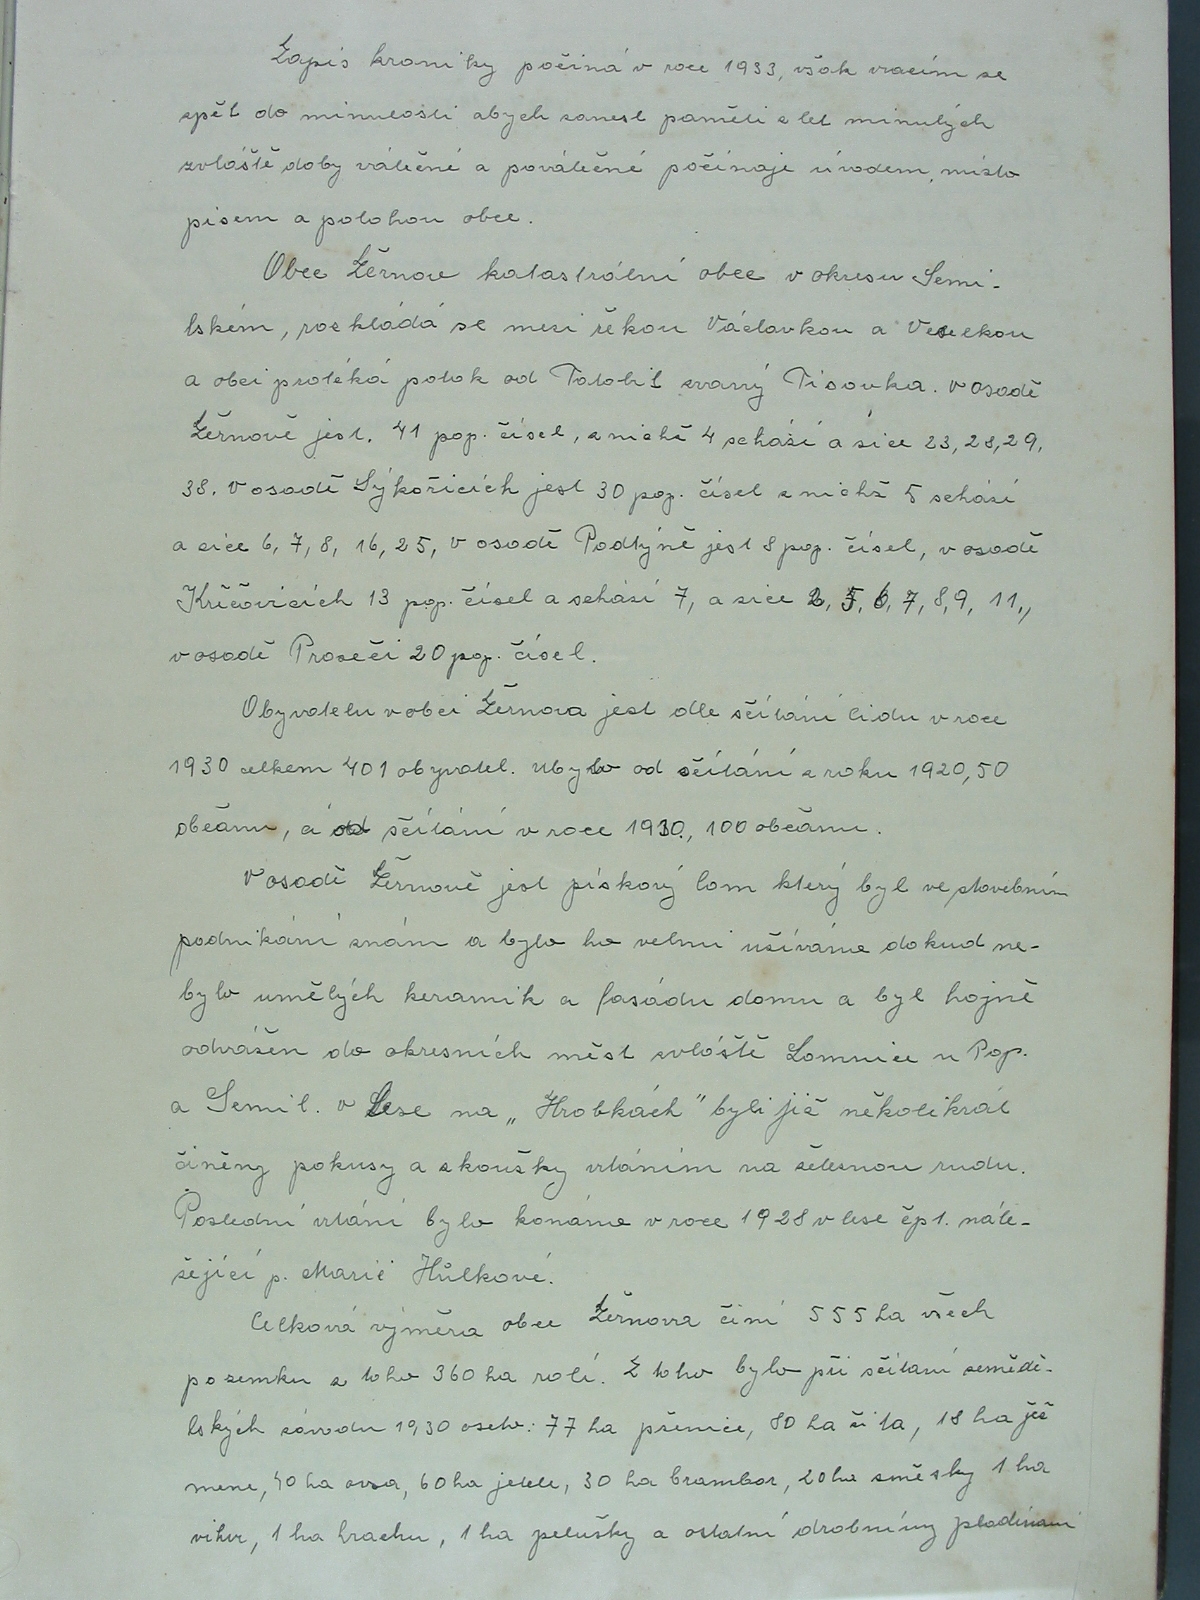 Zapis kroniky počíná v roce 1933, však vracím se
zpět do minulosti abych zanesl paměti z let minulých
zvláště doby válečné a poválečné počínaje úvodem, místo
pisem a polohou obce.
Obec Žernov katastrální obec v okresu Semi-
lském, rozkládá se mezi řékou Václavkou a Veselkou
a obci protéká potok od Tatobit zvaný Tisovka. V osadě
Žěrnově jest. 41 pop. čísel, z nichž 4 scházi a sice 23, 28, 29,
38. V osadě Sýkořicích jest 30 pop. čísel z nichž 5 schází
a sice 6, 7, 8, 16, 25, v osadě Podtýně jest 8 pop. čísel, v osadě
Křičovicích 13 pop. čísel a schází 7, a sice 2, 5, 6, 7, 8, 9, 11.,
v osadě Prosečí 20 pop. čísel.
Obyvatelu v obci Žěrnova jest dle sčítání lidu v roce
1930 celkem 401 obyvatel. Ubylo od sčítání z roku 1920, 50
občanu, a od sčítání v roce 1930., 100 občanu.
V osadě Žěrnově jest pískový lom který byl ve stavebním
podnikání znám a bylo ho velmi užíváno dokud ne-
bylo umělých keramik a fasádu domu a byl hojně
odvážen do okresních měst zvláště Lomnice n Pop.
a Semil. v Lese na „Hrobkách" byli již několikrát
činěny pokusy a zkoušky vrtáním na železnou rudu.
Poslední vrtání bylo konáno v roce 1928 v lese čp 1. nále-
žející p. Marii Hůlkové.
Celková výměra obce Žěrnova činí 555 ha všech
pozemku z toho 360 ha rolí. Z toho bylo při sčítaní zemědě-
lských závodu 1930 oseto: 77 ha pšenice, 80 ha žita, 18 ha ječ
mene, 40 ha ovsa, 60 ha jetele, 30 ha brambor, 20 ha směsky 1 ha
vikve, 1 ha hrachu, 1 ha pelušky a ostatní drobnímy plodinami